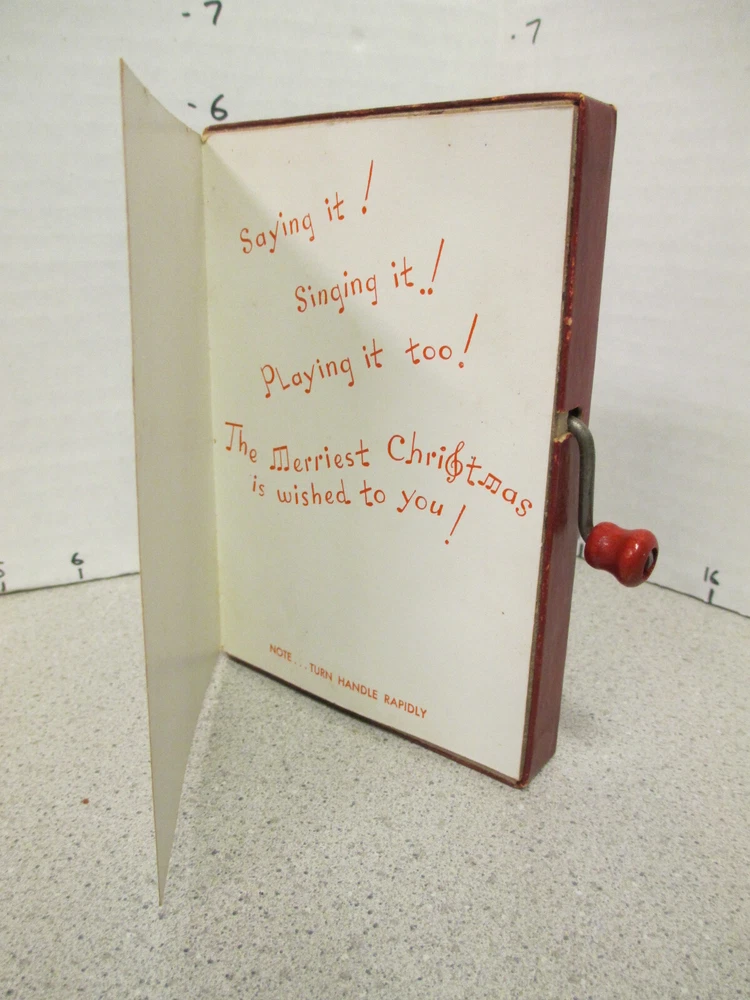 - 7
- 7
- 6
Saying it !
Singing it..!
Playing it too!
The Merriest Christmas
is wished to you!
6
16
NOTE... TURN HANDLE RAPIDLY